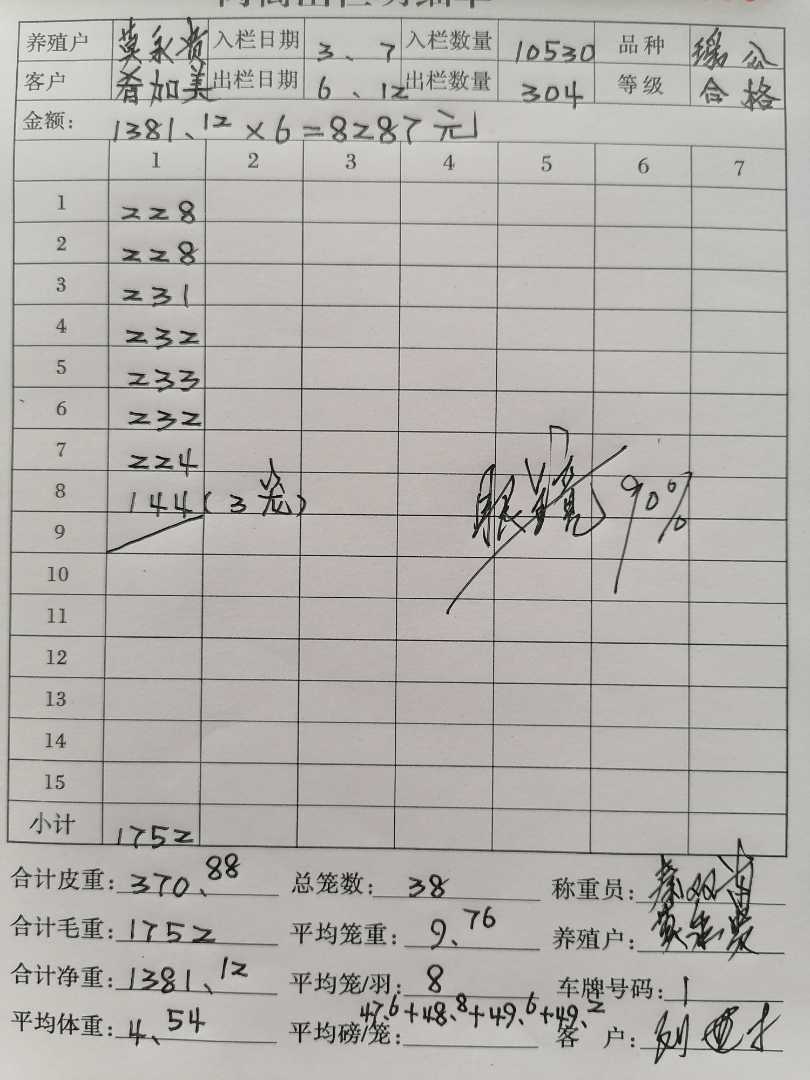 肉鸡出栏明细单
养殖户 莫永贵 入栏日期 3、7 入栏数量 10530 品种
客户 香加美 出栏日期 6、12 出栏数量 304 等级 合格
金额: 1381、12 × 6 = 8287元
1 2 3 4 5 6 7
1 228
2 228
3 231
4 232
5 233
6 232
7 224
8 144(3笼)
9 90%
10
11
12
13
14
15
小计 1752
合计皮重: 370、88 总笼数: 38 称重员:
合计毛重: 1752 平均笼重: 9、76 养殖户: 莫永贵
合计净重: 1381、12 平均笼/羽: 8 车牌号码: 1
平均体重: 4、54 平均磅/笼: 47、6+48、8+49、6+49、2 客户: